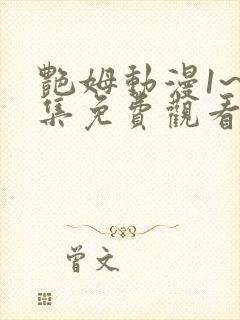 艷姆動漫1~
集免費觀看
曾文